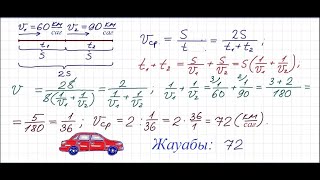 v₁=60 км/сағ v₂=90 км/сағ
t₁ t₂
S S
2S
vср = S/t = 2S/(t₁+t₂) ;
t₁+t₂ = S/v₁ + S/v₂ = S(1/v₁ + 1/v₂)
v = 2S/(S(1/v₁ + 1/v₂)) = 2/(1/v₁ + 1/v₂) ; 1/v₁ + 1/v₂ = 1/60 + 1/90 = (3+2)/180 =
= 5/180 = 1/36 ; vср = 2 : 1/36 = 2 · 36/1 = 72 (км/сағ)
Жауабы: 72